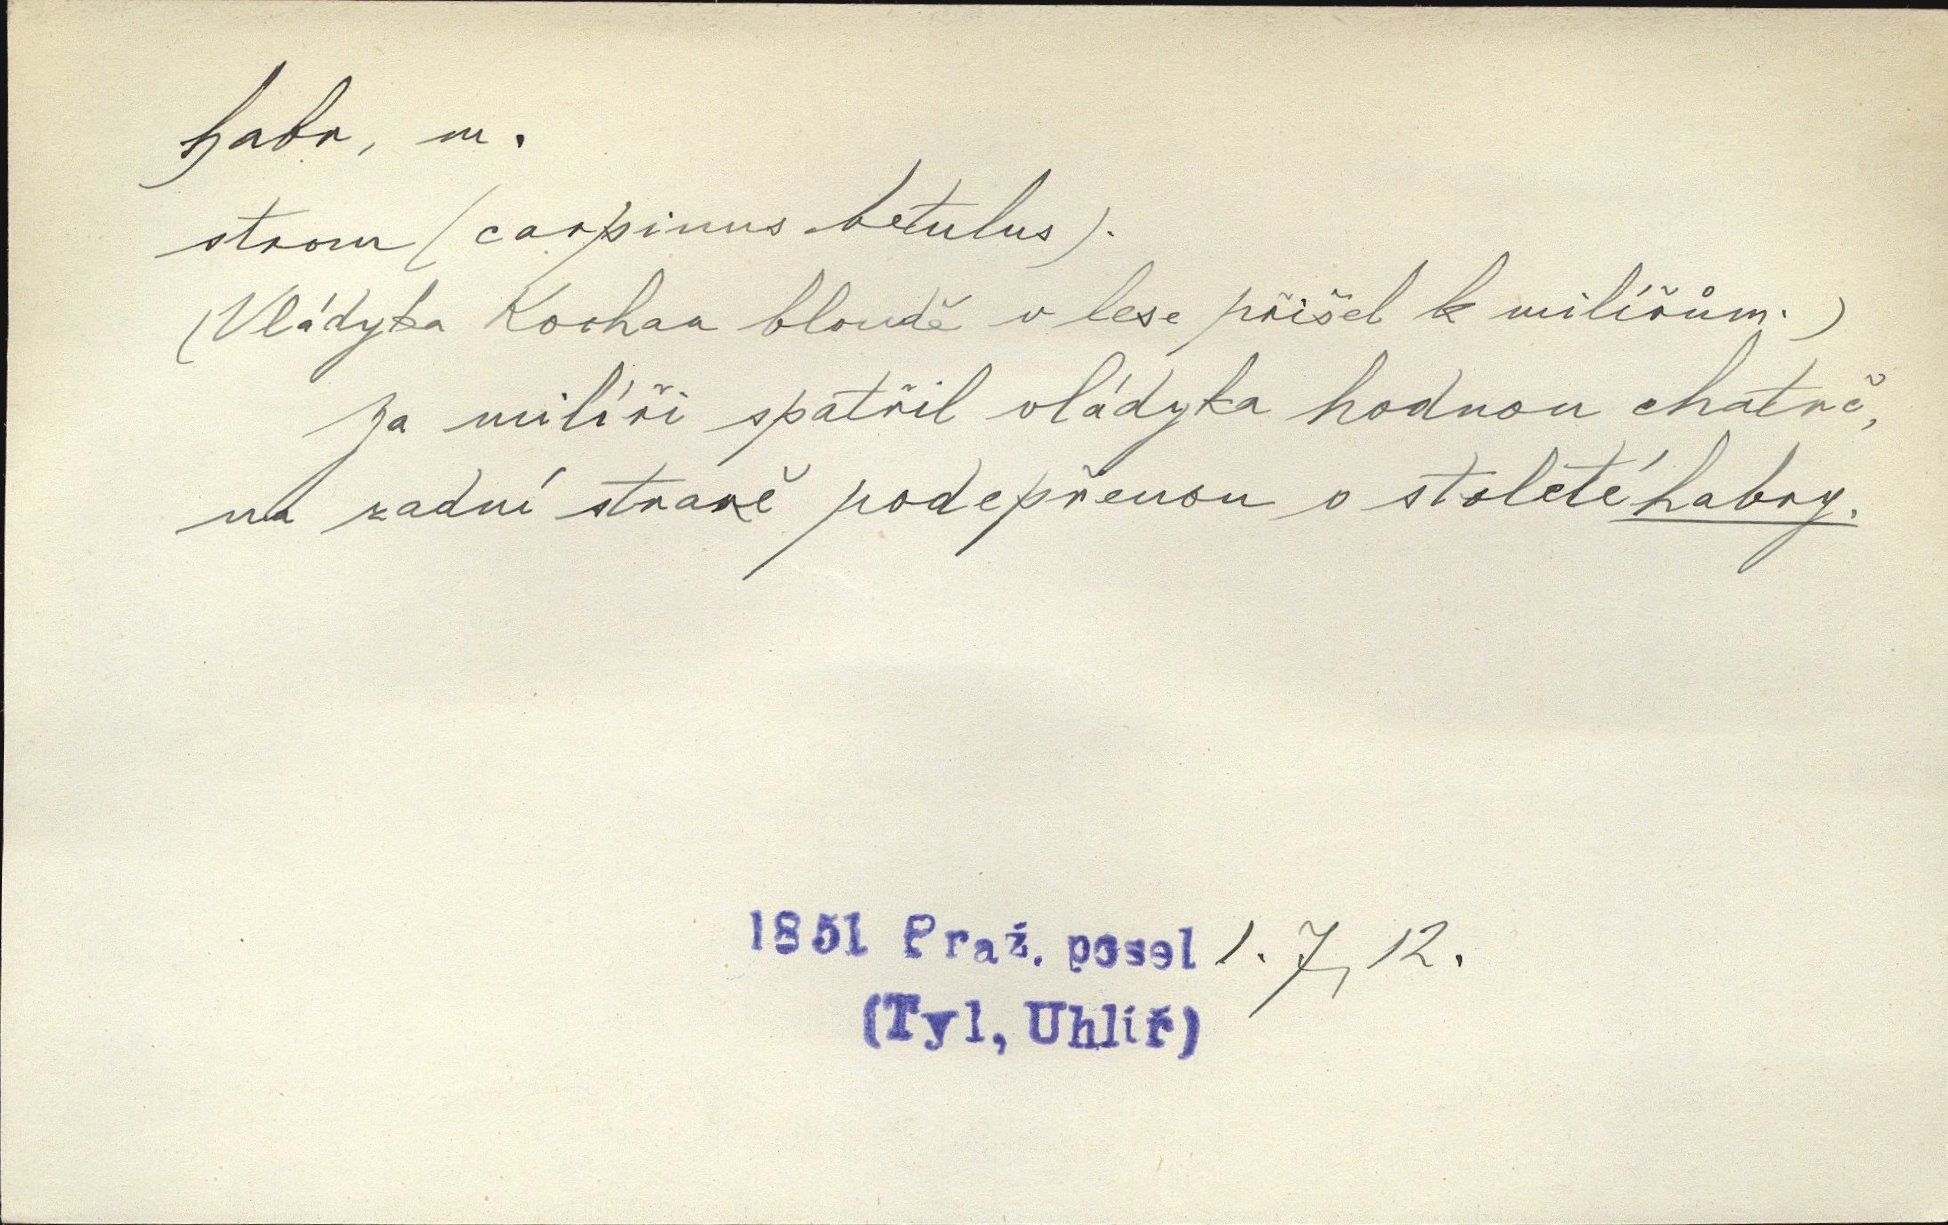 habr, m.
strom (carpinus betulus).
(Vládyka Kochan bloudě v lese přišel k milířům.)
Za milíři spatřil vládyka hodnou chatrč,
na zadní straně podepřenou o stoleté habry.
1851 Praž. posel 1. 7, 12.
(Tyl, Uhlíř)